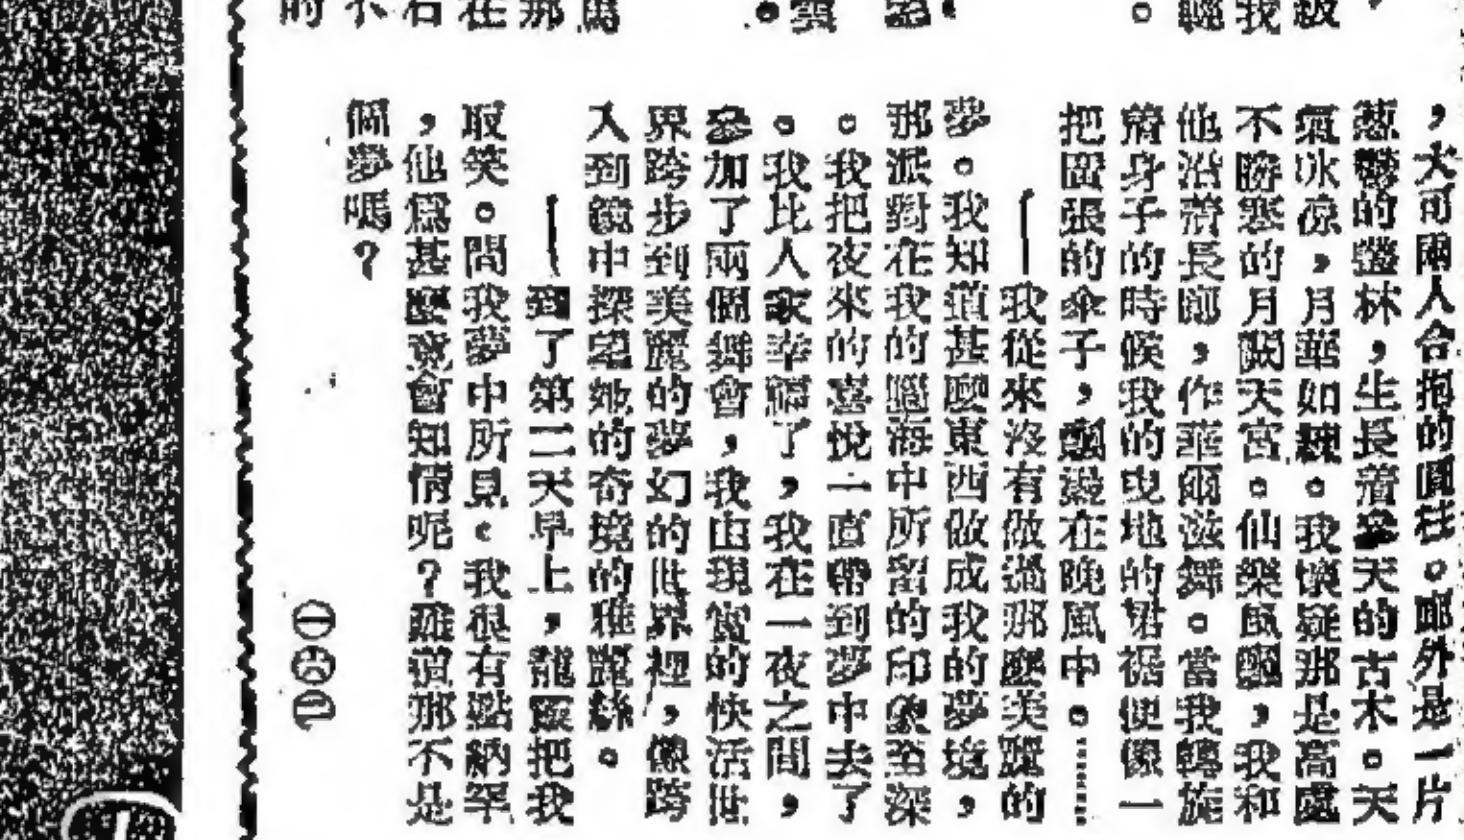 ，大可兩人合抱的圓柱。廊外是一片
葱鬱的叢林，生長着參天的古木。天
氣冰凉，月華如練。我懷疑那是高處
不勝寒的月闕天宮。仙樂風飄，我和
他沿着長廊，作華爾滋舞。當我轉旋
着身子的時候我的曳地的君裾便像一
把圓張的傘子，飄漾在晚風中。……
——我從來沒有做過那麼美麗的
夢。我知道甚麼東西做成我的夢境，
那派對在我的腦海中所留的印象至深
。我把夜來的喜悅一直帶到夢中去了
。我比人家幸福了，我在一夜之間，
參加了兩個舞會，我由現實的快活世
界跨步到美麗的夢幻的世界裡，像跨
入到鏡中探望她的奇境的雅麗絲。
——到了第二天早上，龍靈把我
取笑。問我夢中所見。我很有點納罕
，他爲甚麼竟會知情呢？難道那不是
個夢嗎？
㊀㊅㊁